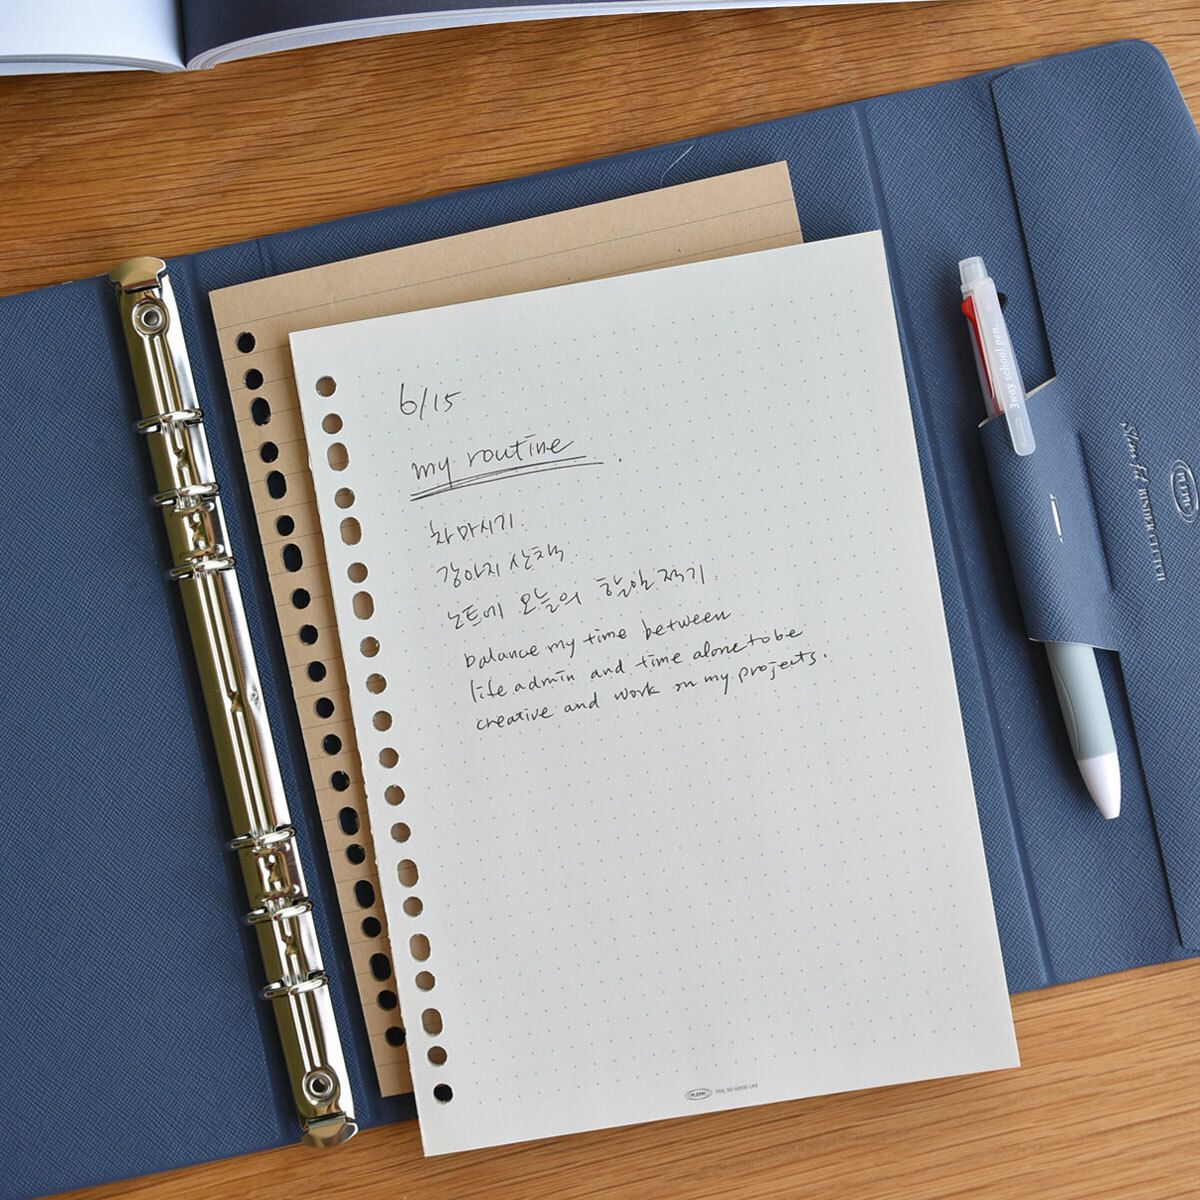 6/15
my routine.
차 마시기.
강아지 산책.
노트에 오늘의 할일 적기.
balance my time between
life admin and time alone to be
creative and work on my projects.
PLEPIC FEEL SO GOOD LIFE
3way school pen.
Slim Fit BUSINESS CLUTCH
PLEPIC